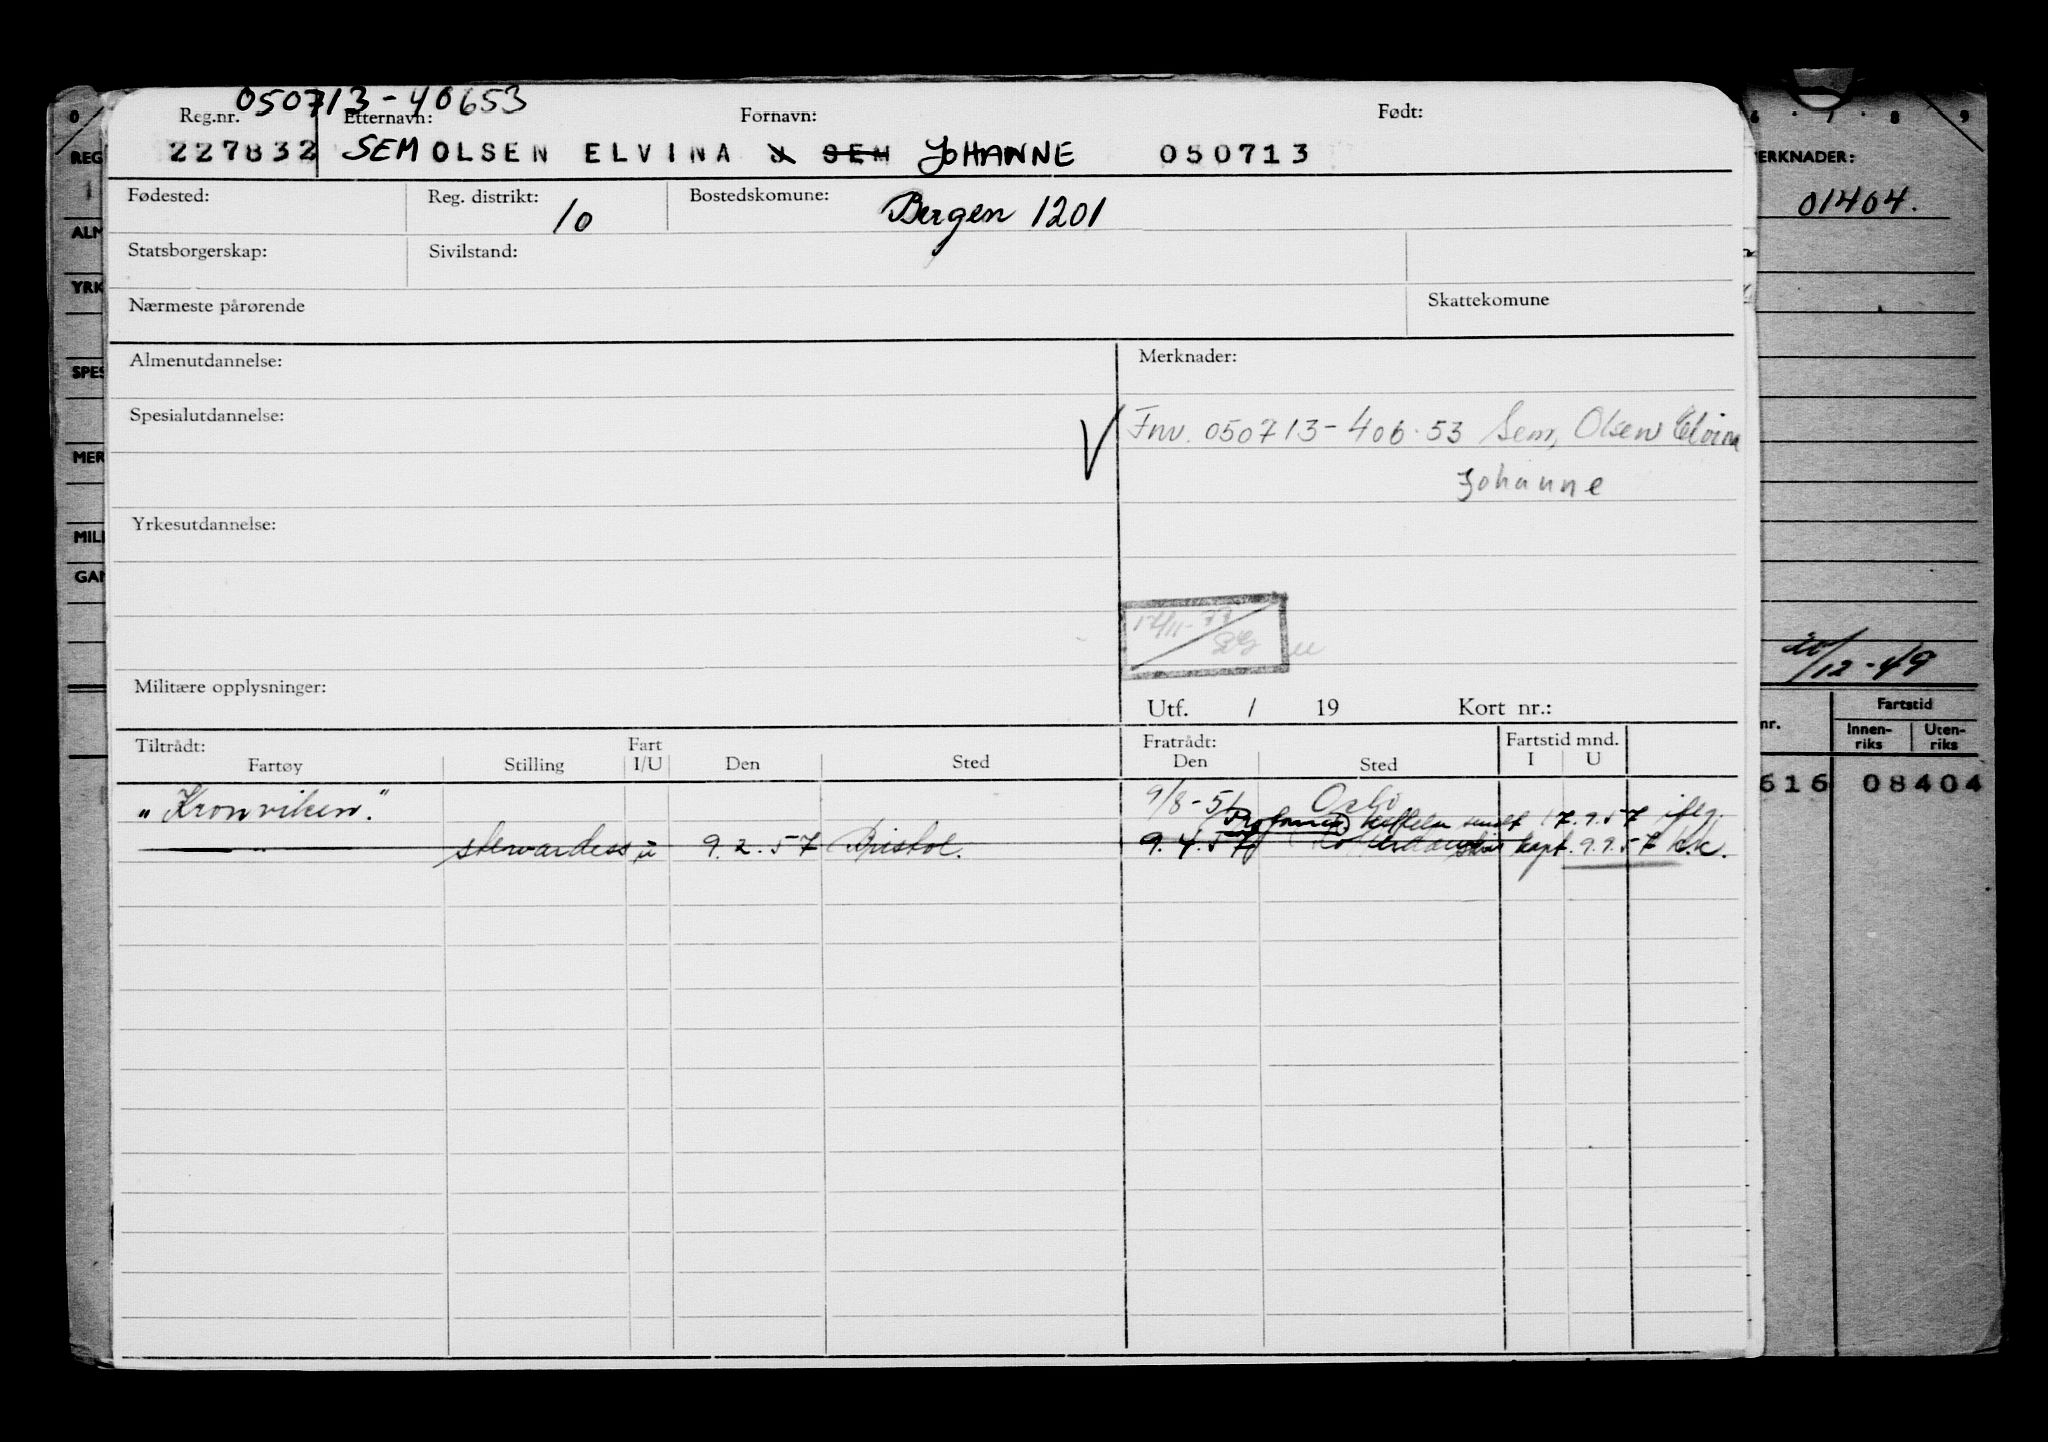 050713-40653
Reg.nr. Etternavn: Fornavn: Født:
227832 SEM OLSEN ELVINA J SEM JOHANNE 050713
Fødested: Reg. distrikt: 10 Bostedskomune: Bergen 1201
Statsborgerskap: Sivilstand:
Nærmeste pårørende Skattekomune
Almenutdannelse: Merknader:
Spesialutdannelse: Fnr. 050713-406.53 Sem, Olsen Elvina
Johanne
Yrkesutdannelse:
Militære opplysninger:
Utf. / 19 Kort nr.:
Tiltrådt: Fart Fratrådt: Fartstid mnd.
Fartøy Stilling I/U Den Sted Den Sted I U
"Kronviken". 9/8-51 Oslo
17.9.57 iflg.
stewardess u 9.2.57 Bristol. 9.4.57 Rotterdam kapt. 9.9.57 k.k.
0 6 7 8 9
REG
MERKNADER:
01404.
ALM
YRK
SPES
MER
MILI
GAN
/12-49
nr. Fartstid
Innen-riks Uten-riks
616 08404